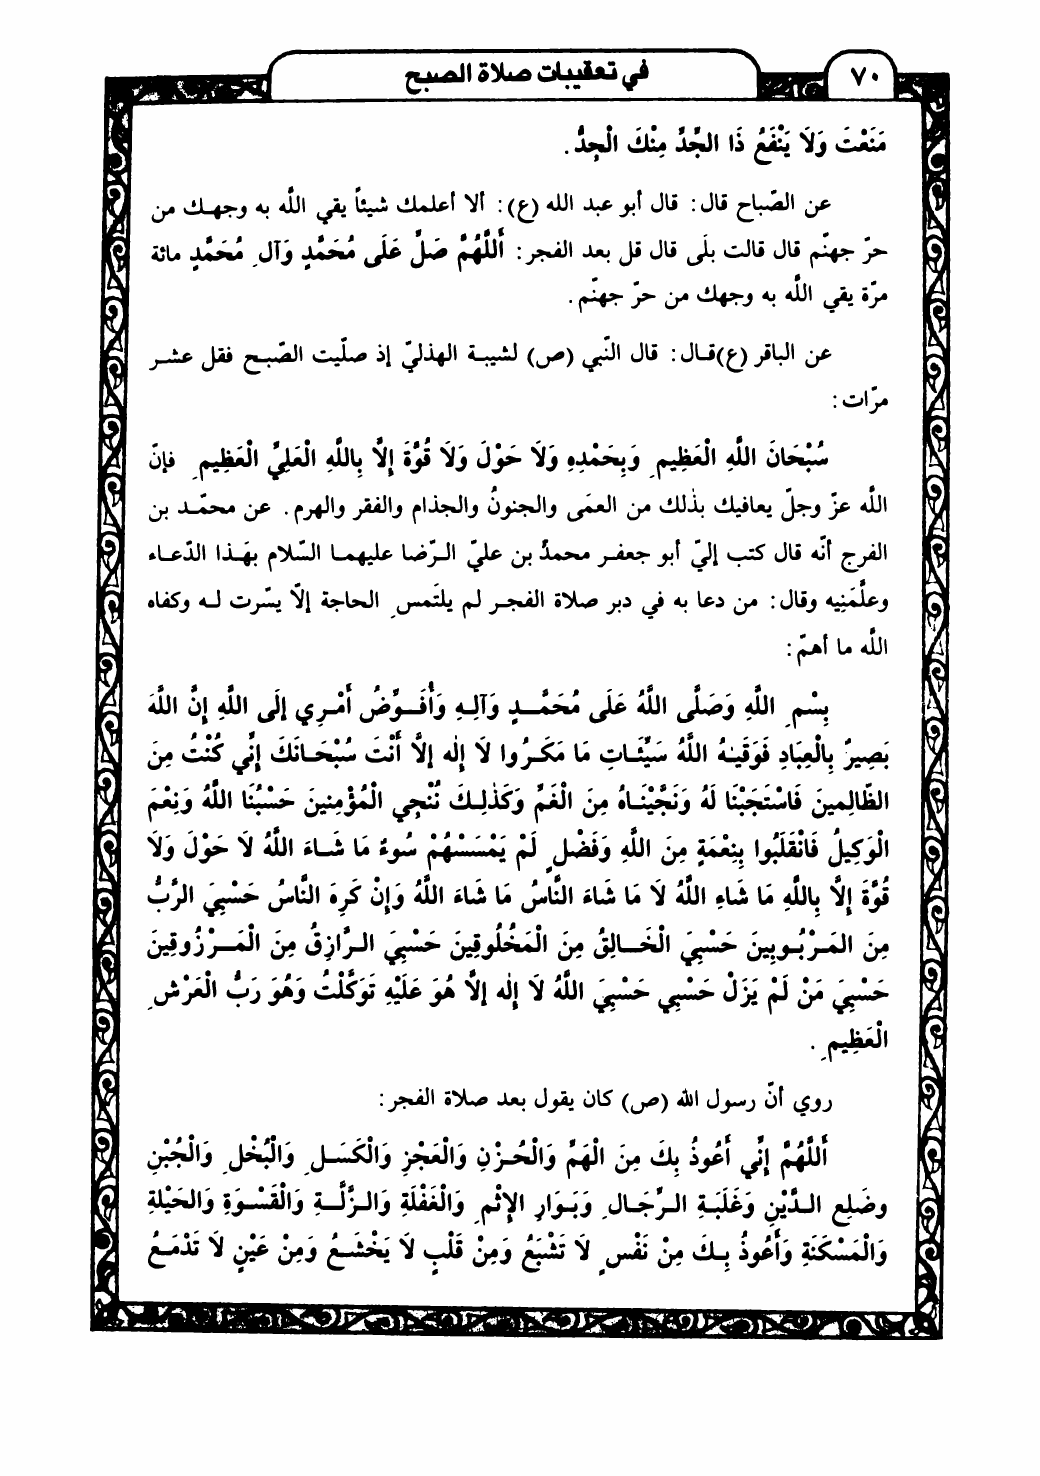 ٧٠
في تعقيبات صلاة الصبح
مَنَعْتَ وَلَا يَنْفَعُ ذَا الجَّدِّ مِنْكَ الْجِدُّ.
عن الصّباح قال: قال أبو عبد الله (ع): ألا أعلمك شيئاً يقي اللَّه به وجهك من
حرّ جهنّم قال قالت بلَى قال قل بعد الفجر: أَللَّهُمَّ صَلِّ عَلَى مُحَمَّدٍ وَآلِ مُحَمَّدٍ مائة
مرّة يقي اللَّه به وجهك من حرّ جهنّم.
عن الباقر (ع)قال: قال النّبي (ص) لشيبة الهذليّ إذ صلّيت الصّبح فقل عشر
مرّات:
سُبْحَانَ اللَّهِ الْعَظِيمِ وَبِحَمْدِهِ وَلَا حَوْلَ وَلَا قُوَّةَ إِلَّا بِاللَّهِ الْعَلِيِّ الْعَظِيمِ فإنّ
اللَّه عزّ وجلّ يعافيك بذٰلك من العمَى والجنونُ والجذام والفقر والهرم. عن محمّد بن
الفرج أنّه قال كتب إليّ أبو جعفر محمدُ بن عليّ الرّضا عليهما السّلام بهَذا الدّعاء
وعلَّمَنِيه وقال: من دعا به في دبر صلاة الفجر لم يلتَمسِ الحاجة إلّا يسّرت له وكفاه
اللَّه ما أهمّ:
بِسْمِ اللَّهِ وَصَلَّى اللَّهُ عَلَى مُحَمَّدٍ وَآلِهِ وَأُفَوِّضُ أَمْرِي إِلَى اللَّهِ إِنَّ اللَّهَ
بَصِيرٌ بِالْعِبَادِ فَوَقَيٰهُ اللَّهُ سَيِّئَاتِ مَا مَكَرُوا لَا إِلٰه إِلَّا أَنْتَ سُبْحَانَكَ إِنِّي كُنْتُ مِنَ
الظّالِمينَ فَاسْتَجَبْنَا لَهُ وَنَجَّيْنَاهُ مِنَ الْغَمِّ وَكَذٰلِكَ نُنْجِي الْمُؤْمِنينَ حَسْبُنَا اللَّهُ وَنِعْمَ
الْوَكِيلُ فَانْقَلَبُوا بِنِعْمَةٍ مِنَ اللَّهِ وَفَضْلٍ لَمْ يَمْسَسْهُمْ سُوءُ مَا شَاءَ اللَّهُ لَا حَوْلَ وَلَا
قُوَّةَ إِلَّا بِاللَّهِ مَا شَاءِ اللَّهُ لَا مَا شَاءَ النَّاسُ مَا شَاءَ اللَّهُ وَإِنْ كَرِهَ النَّاسُ حَسْبِيَ الرَّبُّ
مِنَ المَرْبُوبِينَ حَسْبِيَ الْخَالِقُ مِنَ الْمَخُلُوقِينَ حَسْبِيَ الرَّازِقُ مِنَ الْمَرْزُوقِينَ
حَسْبِيَ مَنْ لَمْ يَزَلْ حَسْبِي حَسْبِيَ اللَّهُ لَا إِلٰه إِلَّا هُوَ عَلَيْهِ تَوَكَّلْتُ وَهُوَ رَبُّ الْعَرْشِ
الْعَظِيمِ.
روي أنّ رسول الله (ص) كان يقول بعد صلاة الفجر:
أَللَّهُمَّ إِنِّي أَعُوذُ بِكَ مِنَ الْهَمِّ وَالْحُزْنِ وَالْعَجْزِ وَالْكَسَلِ وَالْبُخْلِ وَالْجُبْنِ
وضَلِعِ الدَّيْنِ وَغَلَبَةِ الرِّجَالِ وَبَوَارِ الإِثْمِ وَالْغَفْلَةِ وَالزَّلَّةِ وَالْقَسْوَةِ وَالحَيْلَةِ
وَالْمَسْكَنَةِ وَأَعُوذُ بِكَ مِنْ نَفْسٍ لَا تَشْبَعُ وَمِنْ قَلْبٍ لَا يَخْشَعُ وَمِنْ عَيْنٍ لَا تَدْمَعُ